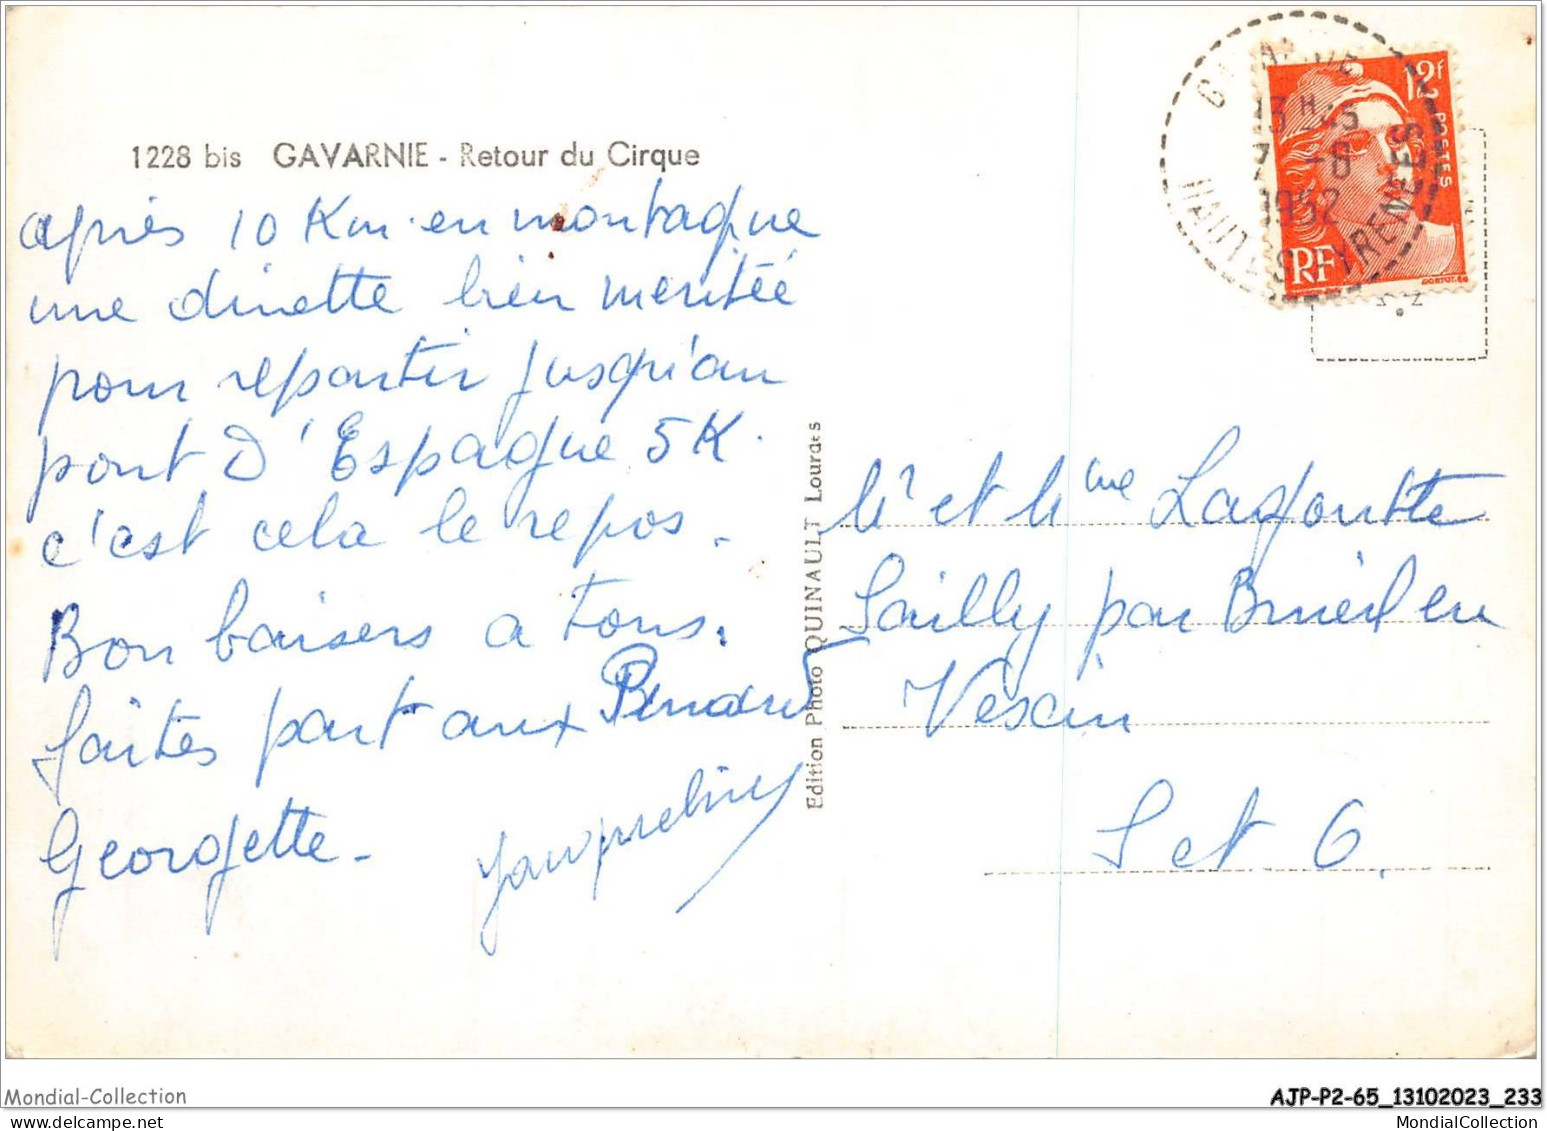 1228 bis GAVARNIE - Retour du Cirque
après 10 Km. en montagne
une dinette bien meritée
pour repartir jusqu'au
pont D'Espagne 5K.
c'est cela le repos.
Bon baisers a tous.
faites part aux Penard
Georgette - Jacqueline
Edition Photo QUINAULT Lourdes
HAUTES PYRENNEES
1952
12f
POSTES
RF
Mr et Mme Lafoutte
Sailly par Brueil en
Vexin
S et O.
Mondial-Collection
AJP-P2-65_13102023_233
MondialCollection